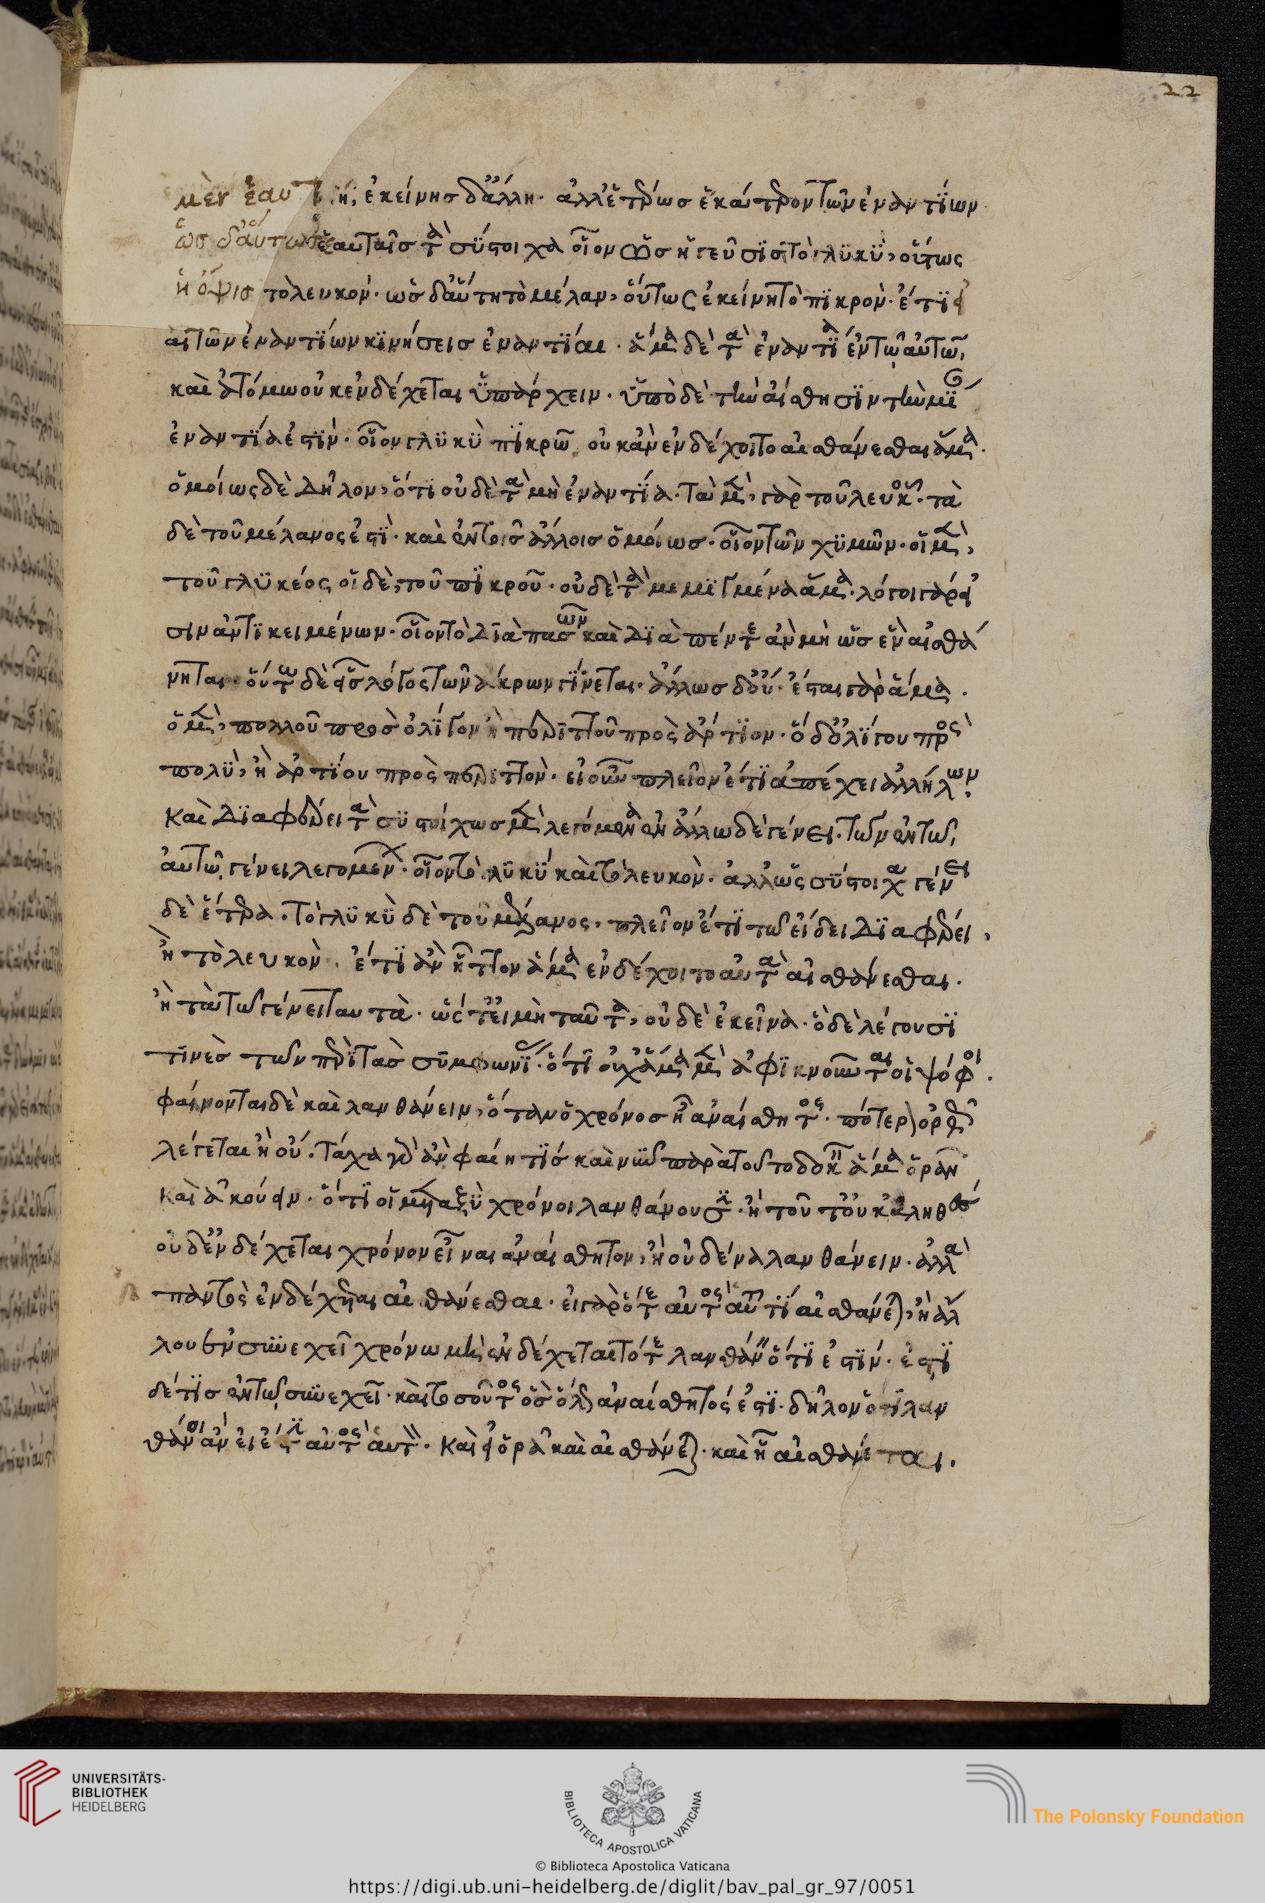 22
μὲν ἑαυτῆ, ἐκείνης δ' ἄλλη· ἀλλ' ἑτέρως ἑκάτερον τῶν ἐναντίων
ὡς δ' αὕτως ἑαυταῖς τὰ σύστοιχα οἷον ὡς ἡ γεῦσις τὸ γλυκὺ, οὕτως
ἡ ὄψις τὸ λευκὸν· ὡς δ' αὕτη τὸ μέλαν, οὕτως ἐκείνη τὸ πικρὸν· ἔτι εἰ
αἱ τῶν ἐναντίων κινήσεις ἐναντίαι· ἅμα δὲ τὰ ἐναντία ἐν τῶ αὐτῶ,
καὶ ἀτόμω οὐκ ἐνδέχεται ὑπάρχειν· ὑπὸ δὲ τὴν αἴσθησιν τὴν μίαν
ἐναντία ἐστὶν· οἷον γλυκὺ πικρῶ, οὐκ ἂν ἐνδέχοιτο αἰσθάνεσθαι ἅμα·
ὁμοίως δὲ δῆλον, ὅτι οὐδὲ τὰ μὴ ἐναντία· τὰ μὲν, γὰρ τοῦ λευκοῦ· τὰ
δὲ τοῦ μέλανος ἐστὶ· καὶ ἐν τοῖς ἄλλοις ὁμοίως· οἷον τῶν χυμῶν· οἱ μὲν,
τοῦ γλυκέος, οἱ δὲ, τοῦ πικροῦ· οὐδὲ τὰ μεμιγμένα ἅμα· λόγοι γάρ εἰ
σιν ἀντικειμένων· οἷον τὸ διὰ πασῶν καὶ διὰ πέντε ἂν μὴ ὡς ἓν αἰσθά
νηται· οὕτω δὲ εἷς λόγος τῶν ἄκρων γίνεται· ἄλλως δ' οὔ· ἔσται γὰρ ἅμα·
ὁ μὲν, πολλοῦ πρὸς ὀλίγον ἢ περιττοῦ πρὸς ἄρτιον· ὁ δ' ὀλίγου πρὸς
πολὺ, ἢ ἀρτίου πρὸς περιττὸν· εἰ οὖν πλεῖον ἔτι ἀπέχει ἀλλήλων
καὶ διαφέρει τὰ συστοίχως μὲν λεγόμενα ἐν ἄλλω δὲ γένει· τῶν ἐν τῶ
αὐτῶ, γένει λεγομένων· οἷον τὸ γλυκὺ καὶ τὸ λευκὸν· ἀλλ' ὡς σύστοιχα γένει
δὲ ἕτερα· τὸ γλυκὺ δὲ τοῦ μέλανος, πλεῖον ἔτι τῶ εἴδει διαφέρει,
ἢ τὸ λευκὸν· ἔτι ἂν ἧττον ἅμα ἐνδέχοιτο αὐτὰ αἰσθάνεσθαι·
ἢ τὰ τῶ γένει ταυτὰ· ὥστ' εἰ μὴ ταῦτα, οὐδὲ ἐκεῖνα· ὃ δὲ λέγουσί
τινὲς τῶν περὶ τὰς συμφωνίας· ὅτι οὐχ ἅμα μὲν ἀφικνοῦνται οἱ ψόφοι·
φαίνονται δὲ καὶ λανθάνειν, ὅταν ὁ χρόνος ἦ ἀναίσθητος· πότερον ὀρθῶς
λέγεται ἢ οὔ· τάχα γὰρ ἂν φαίη τίς καὶ νῦν παρὰ τοῦτο δοκεῖ ἅμα ὁρᾶν
καὶ ἀκούειν· ὅτι οἱ μεταξὺ χρόνοι λανθάνουσιν· ἢ τοῦτ' οὐκ ἀληθὲς
οὐδ' ἐνδέχεται χρόνον εἶναι ἀναίσθητον, ἢ οὐδένα λανθάνειν· ἀλλὰ
παντὸς ἐνδέχεται αἰσθάνεσθαι· εἰ γὰρ ὅτε αὐτὸς αὑτοῦ τί αἰσθάνεται, ἢ ἄλ
λου ἐν συνεχεῖ χρόνω μὴ ἐνδέχεται τότε λανθάνειν ὅτι ἐστὶν· ἔστι
δέ τις ἐν τῶ συνεχεῖ· καὶ τοσοῦτος ὅσος ὅλως ἀναίσθητός ἐστι· δῆλον ὅτι λαν
θάνοι ἂν εἰ ἔστιν αὐτὸς αὑτὸν· καὶ εἰ ὁρᾶ καὶ αἰσθάνεται· καὶ ἦ αἰσθάνεται.
UNIVERSITÄTS-
BIBLIOTHEK
HEIDELBERG
BIBLIOTECA APOSTOLICA VATICANA
The Polonsky Foundation
© Biblioteca Apostolica Vaticana
https://digi.ub.uni-heidelberg.de/diglit/bav_pal_gr_97/0051